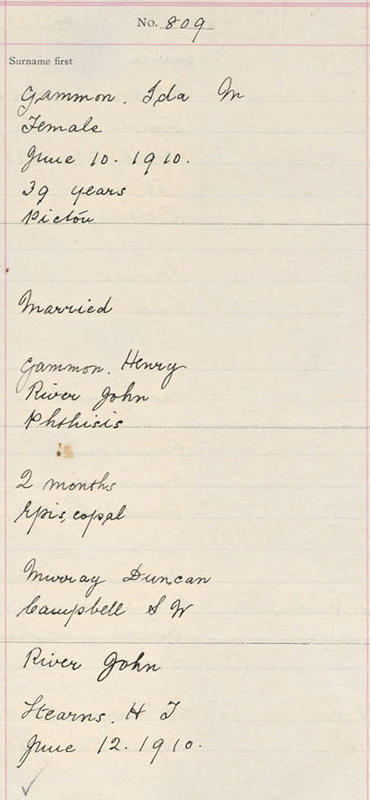 No. 809
Surname first
Gammon. Ida M
Female
June 10. 1910.
39 years
Pictou
Married
Gammon. Henry
River John
Phthisis
2 months
Episcopal
Murray Duncan
Campbell S W
River John
Stearns. H T
June 12. 1910.